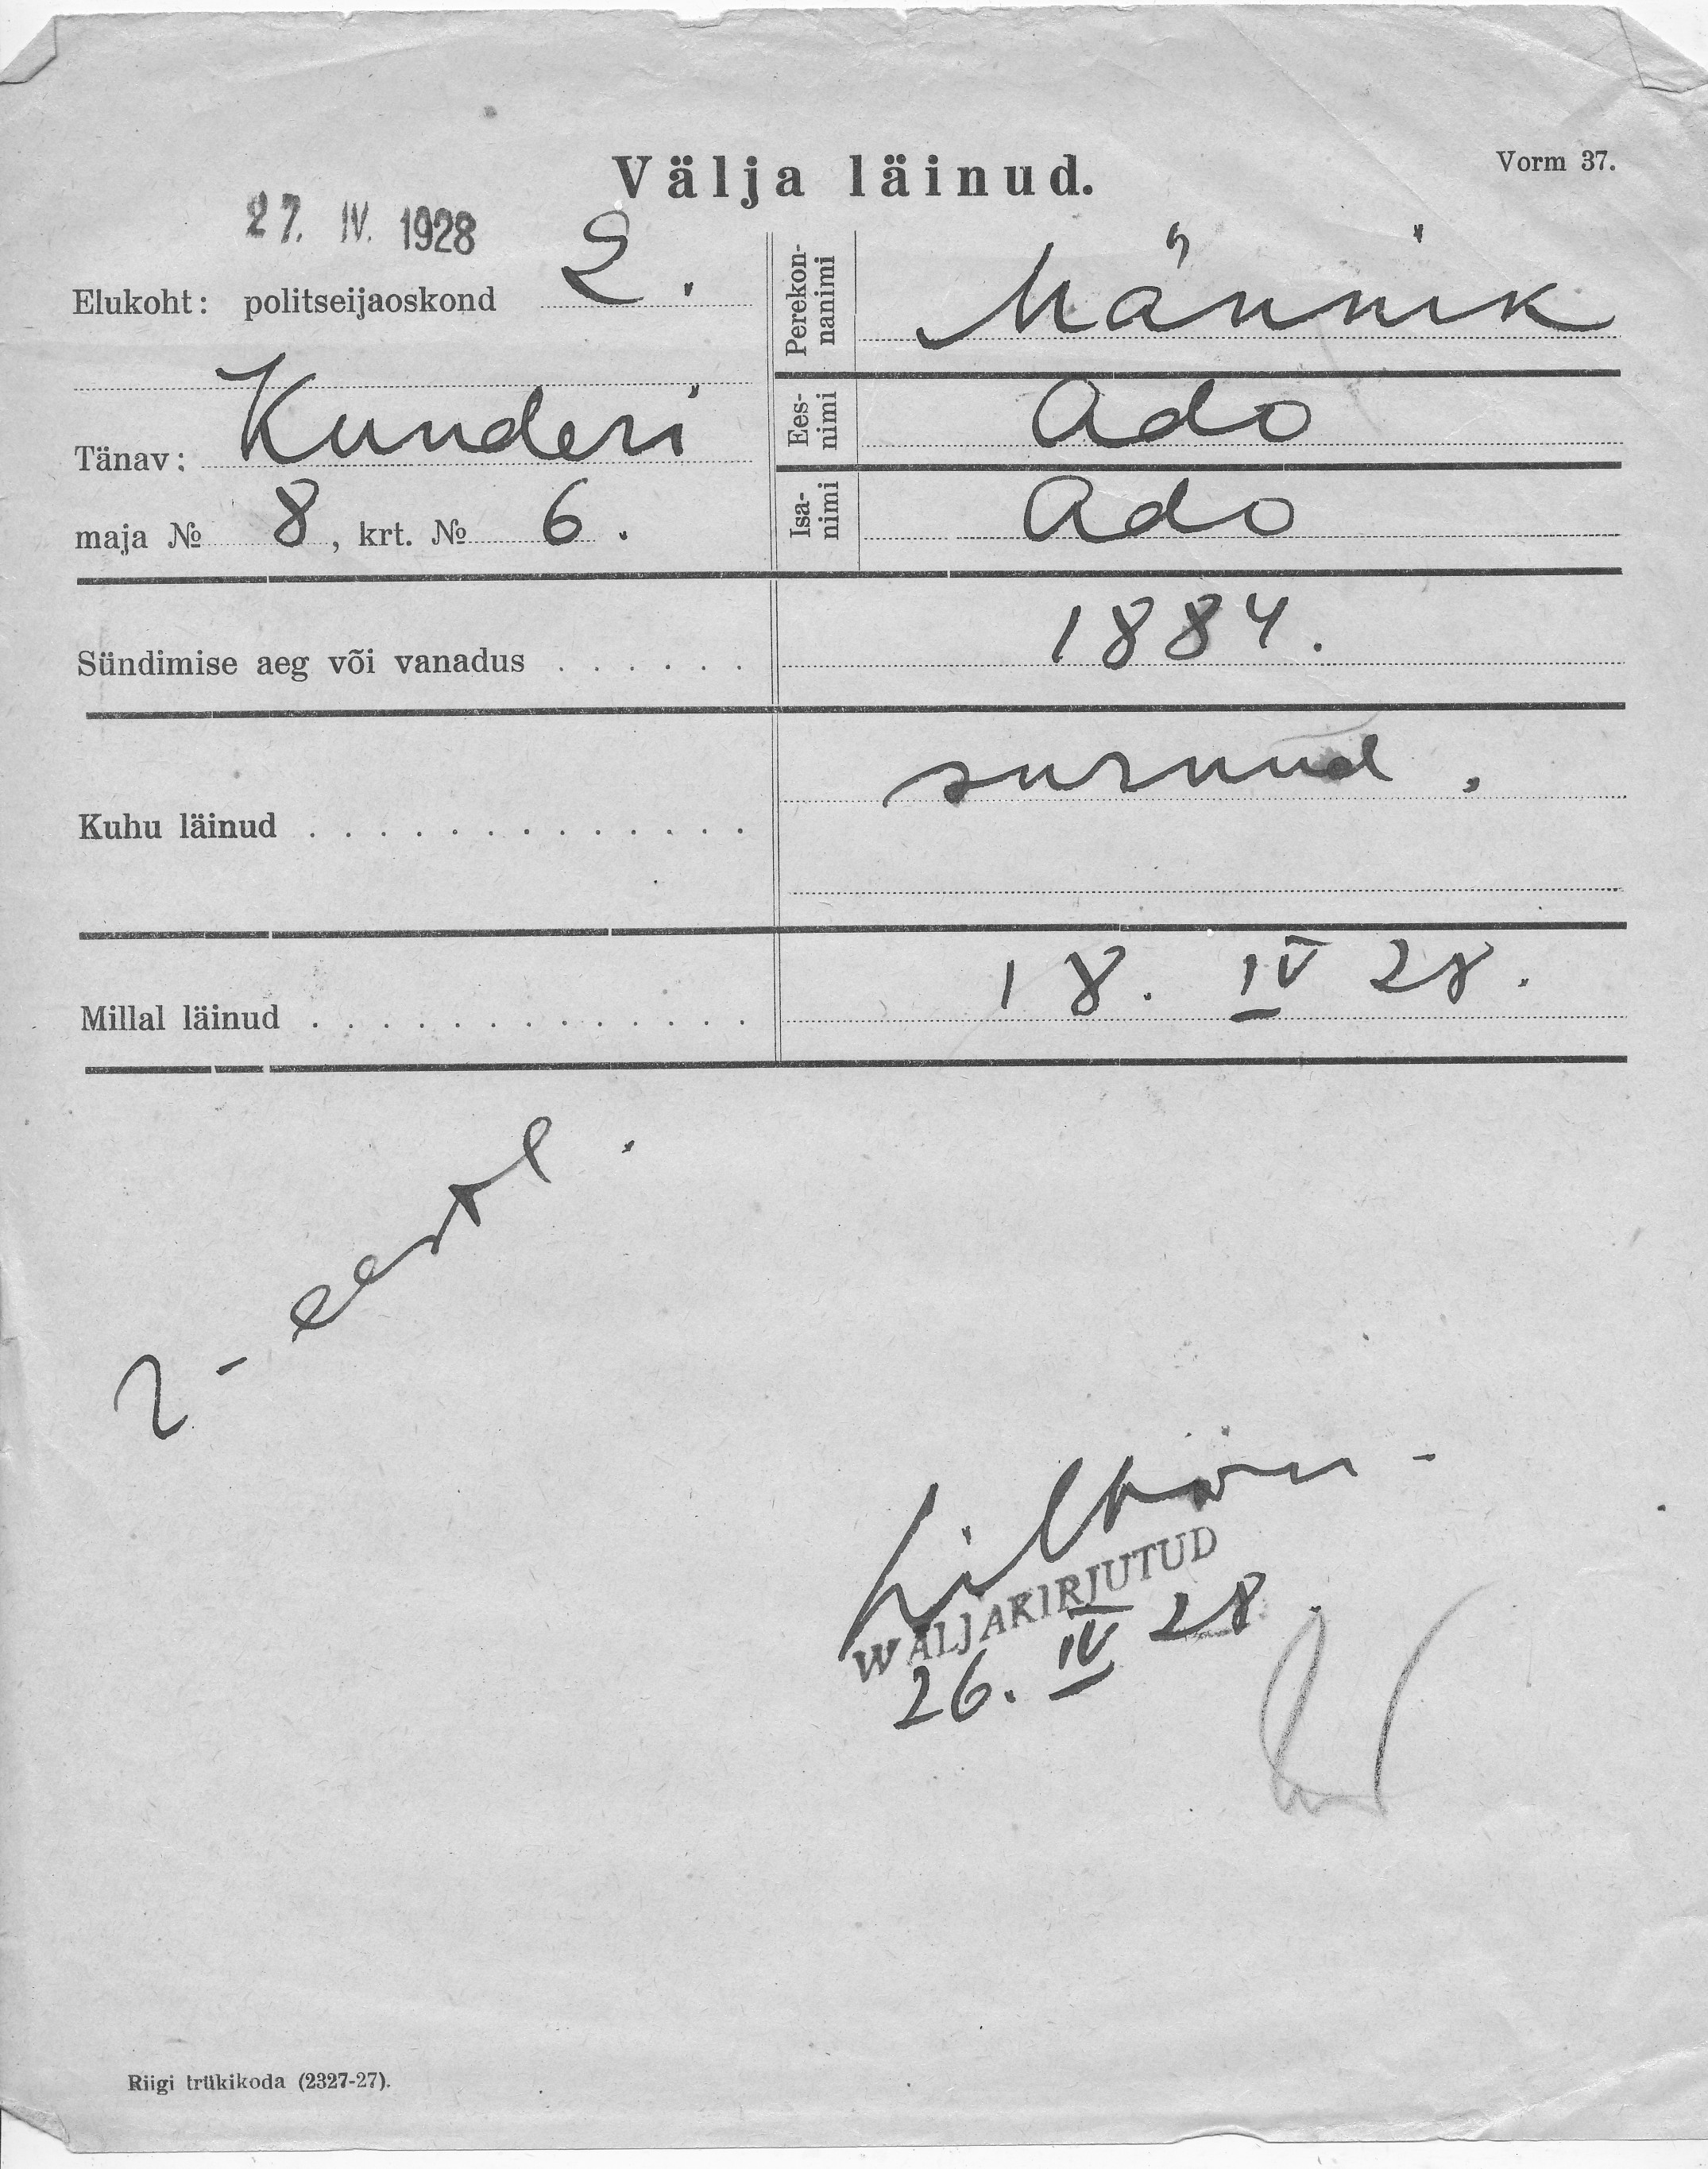 Välja läinud.
Vorm 37.
27. IV. 1928
Elukoht: politseijaoskond 2.
Tänav: Kunderi
maja № 8, krt. № 6.
Perekon-
nanimi
Männik
Ees-
nimi
Ado
Isa-
nimi
Ado
Sündimise aeg või vanadus . . . . . . 1884.
Kuhu läinud . . . . . . . . . . . . . . surnud.
Millal läinud . . . . . . . . . . . . . . 18. IV 28.
WÄLJAKIRJUTUD
26. IV 28.
Riigi trükikoda (2327-27).